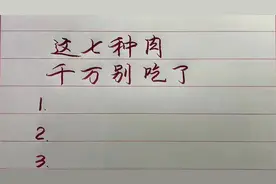 这七种肉
千万别吃了
1.
2.
3.